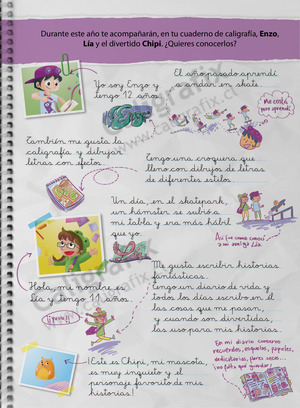 Durante este año te acompañarán, en tu cuaderno de caligrafía, Enzo,
Lía y el divertido Chipi. ¿Quieres conocerlos?
Yo soy Enzo y
tengo 12 años.
El año pasado aprendí
a andar en skate.
¡Me costó
pero aprendí!
También me gusta la
caligrafía y dibujar
letras con efectos.
Tengo una croquera que
lleno con dibujos de letras
de diferentes estilos.
Un día, en el skatepark,
un hámster se subió a
mi tabla y era más hábil
que yo.
Así fue como conocí
a mi amiga Lía.
Hola, mi nombre es
Lía y tengo 11 años.
Me gusta escribir historias
fantásticas.
Tengo un diario de vida y
todos los días escribo en él
las cosas que me pasan,
y cuando son divertidas,
las uso para mis historias.
En mi diario conservo
recuerdos, esquelas, papeles,
dedicatorias, flores secas...
¡Este es Chipi, mi mascota,
es muy inquieto y el
personaje favorito de mis
historias!